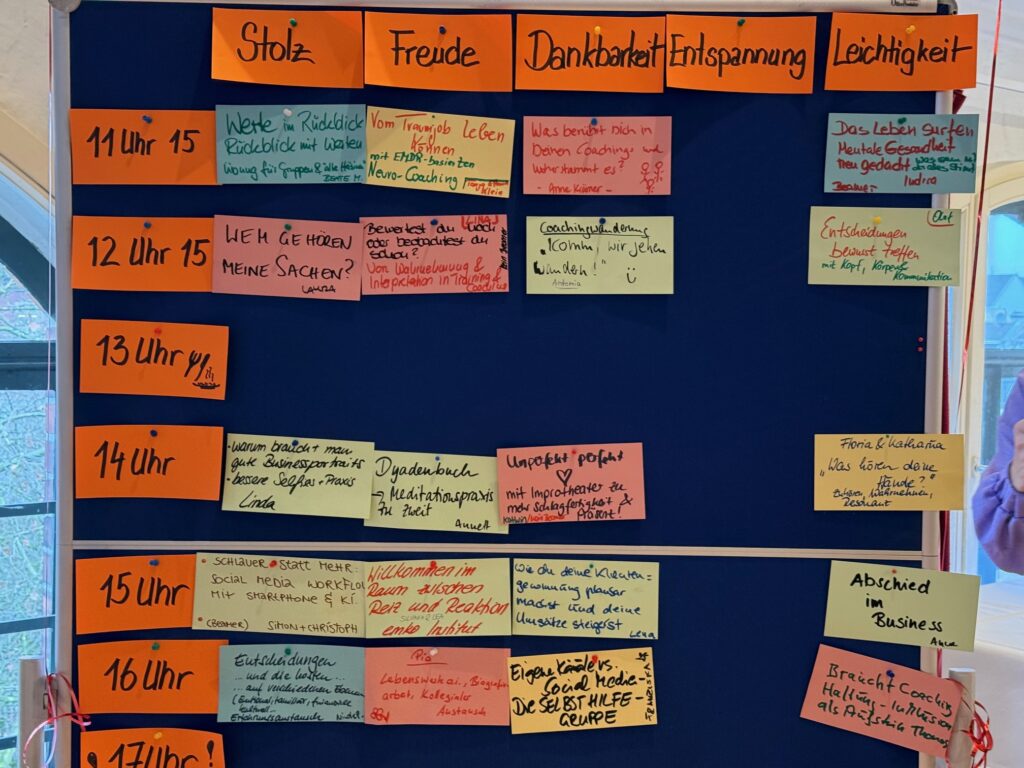 Stolz
Freude
Dankbarkeit
Entspannung
Leichtigkeit
11 Uhr 15
Werte im Rückblick
Rückblick mit Werten
Übung für Gruppen &
BEATE M.
Vom Traumjob Leben
können
mit EMDR-basierten
Neuro-Coaching
Klein
Was berührt Dich in
Deinen Coachings und
woher stammt es?
- Anne Krämer -
Das Leben surfen
Mentale Gesundheit
neu gedacht
Indira
Beamer
12 Uhr 15
WEM GEHÖREN
MEINE SACHEN?
LAURA
Bewertest du noch
oder beobachtest du
schon?
Von Wahrnehmung &
Interpretation in Training &
Coaching
Coachingwanderung
"Komm, wir gehen
wandern!"
Antonia
Out
Entscheidungen
bewusst treffen
mit Kopf, Körper &
Kommunikation
13 Uhr
14 Uhr
· warum braucht man
gute Businessportraits
· bessere Selfies-Praxis
Linda
Dyadenbuch
→ Meditationspraxis
zu zweit
Annett
Unperfekt perfekt
mit Improtheater zu
mehr Schlagfertigkeit &
Präsenz!
Floria & Katharina
"Was hören deine
Hände?"
Zuhören, Wahrnehmen,
Resonanz
15 Uhr
· SCHLAUER STATT MEHR:
SOCIAL MEDIA WORKFLOW
MIT SMARTPHONE & KI.
· (BEAMER) SIMON + CHRISTOPH
Willkommen im
Raum zwischen
Reiz und Reaktion
emko Institut
Wie du deine Klienten=
gewinnung planbar
machst und deine
Umsätze steigerst
Lena
Abschied
im
Business
Anne
16 Uhr
Entscheidungen
... und die Kosten ...
... auf verschiedenen Ebenen
Erfahrungsaustausch
Pia
Lebenswerk
arbeit, Kollegialer
Austausch
Eigene Kanäle vs.
Social Media -
Die SELBSTHILFE-
GRUPPE
FRANZISKA
Braucht Coaching
Haltung
als Aufstrich Thomas
17 Uhr!